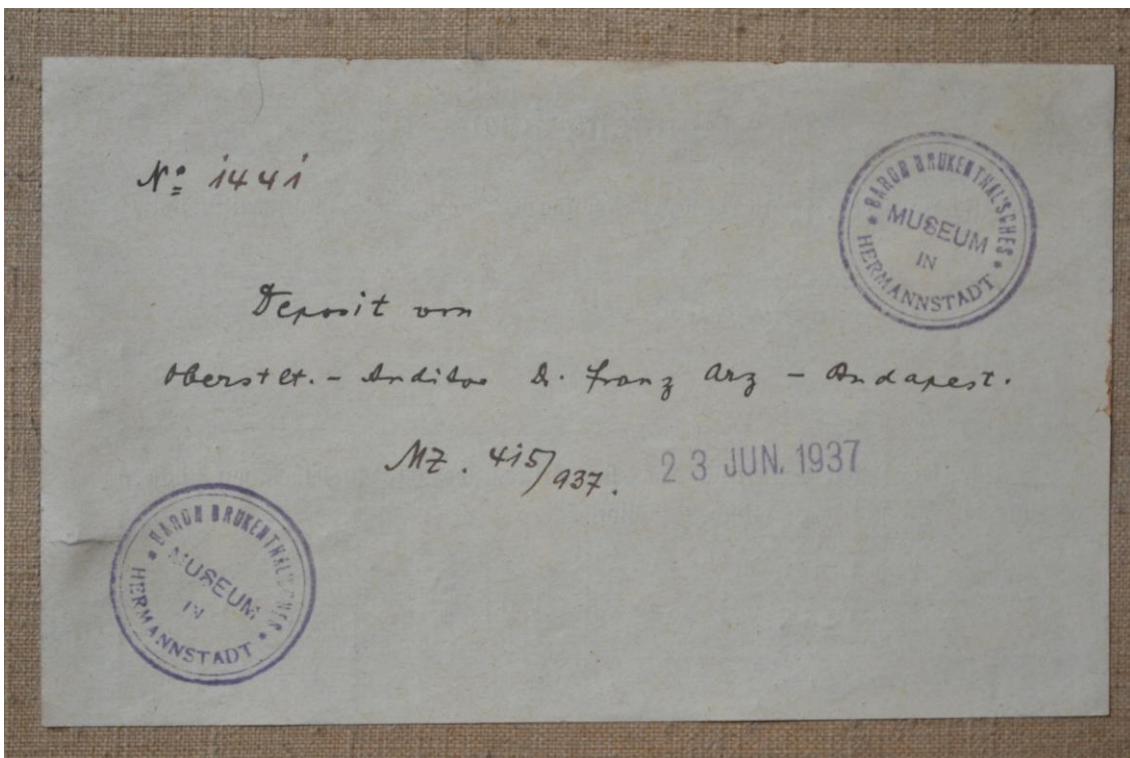 Nº 1441
BARON BRUKENTHAL'SCHES
MUSEUM
IN
HERMANNSTADT
Deposit von
Oberstlt. - Auditor Dr. Franz Arz - Budapest.
MZ. 415/937.
23 JUN. 1937
BARON BRUKENTHAL'SCHES
MUSEUM
IN
HERMANNSTADT